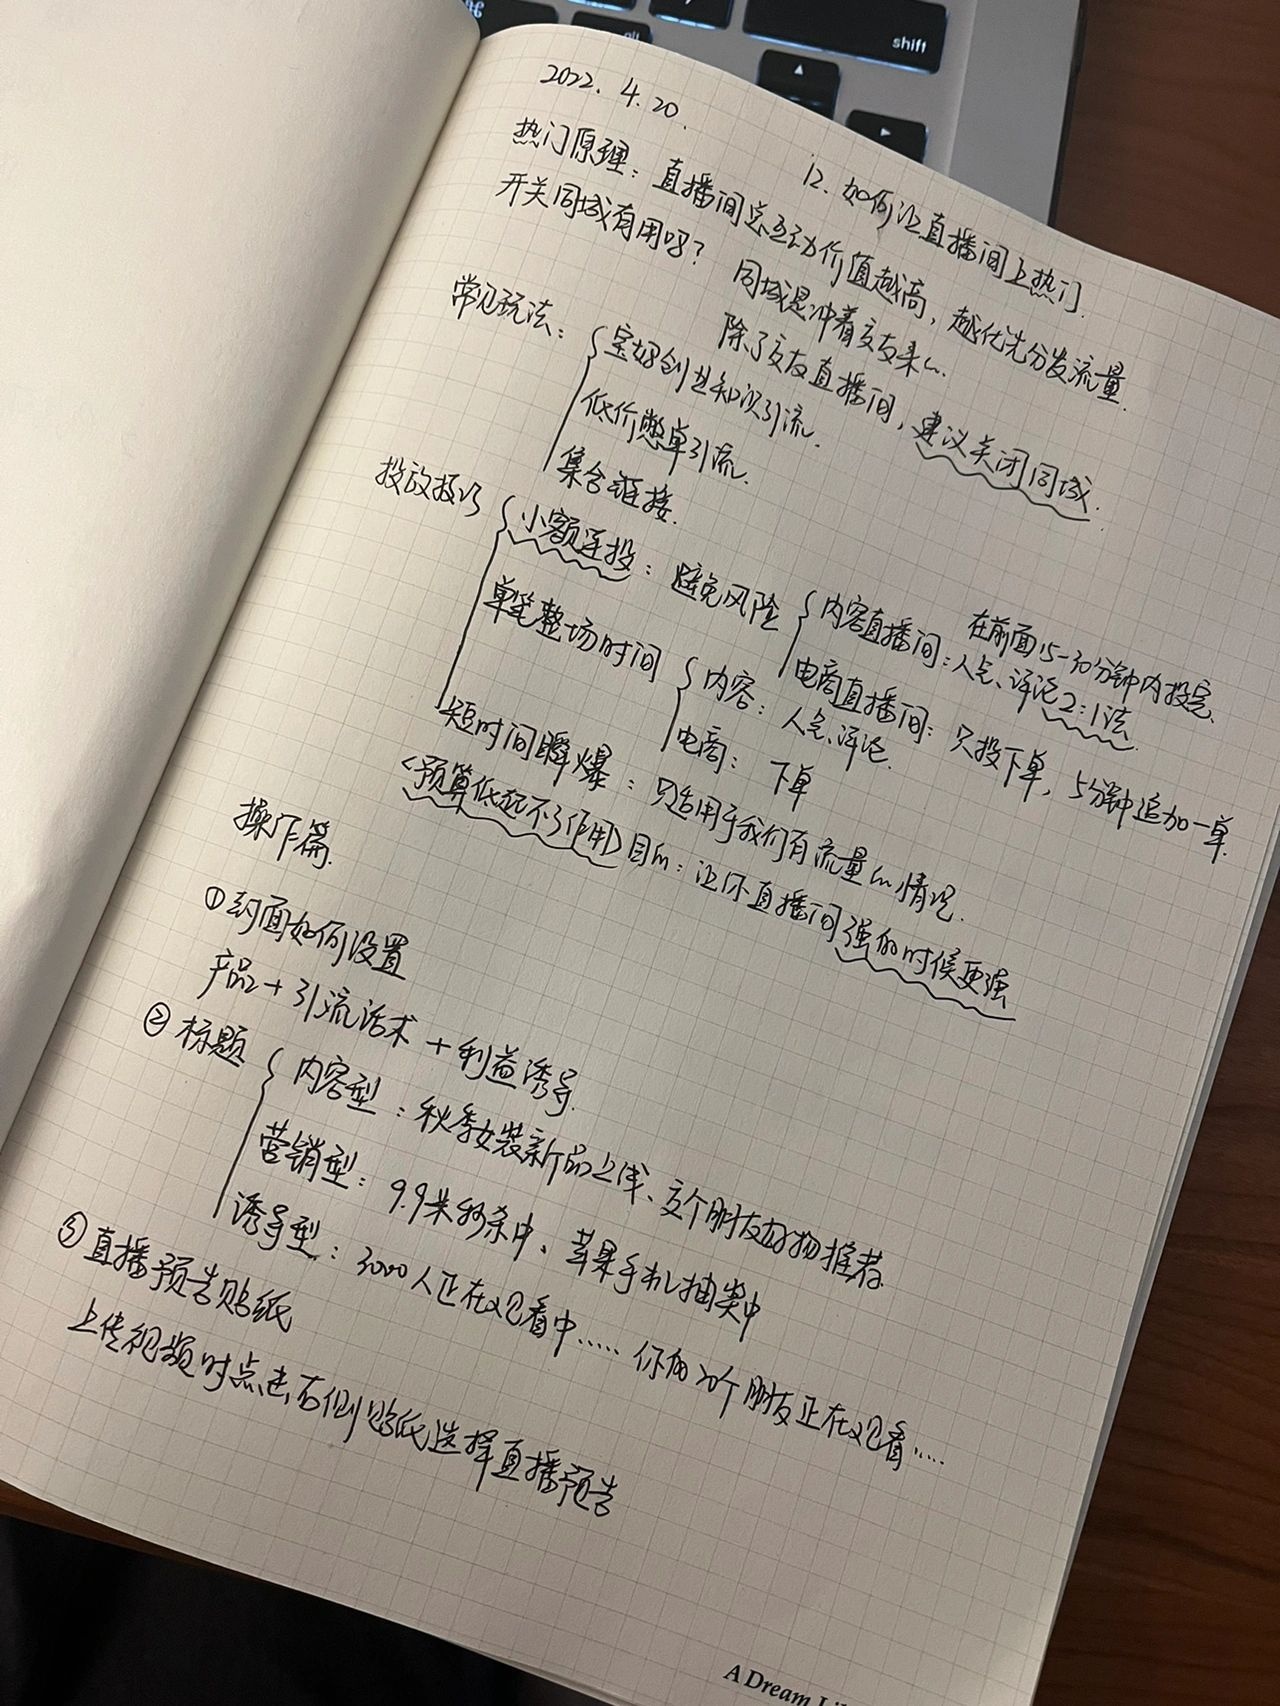 shift
2022.4.20.
12.如何让直播间上热门.
热门原理：直播间总互动价值越高，越优先分发流量.
开关同城有用吗？ 同城是冲着交友来的.
除了交友直播间，建议关闭同城.
常见玩法：
宝妈创业知识引流.
低价憋单引流.
集合链接.
投放技巧
小额连投：避免风险
在前面15-30分钟内投完.
内容直播间：人气、评论2:1法
电商直播间：只投下单，5分钟追加一单
单笔整场时间
内容：人气、评论.
电商：下单
短时间瞬爆：只适用于我们有流量的情况.
<预算低起不了作用> 目的：让你直播间强的时候更强
操作篇.
①封面如何设置
产品+引流话术+利益诱导.
②标题
内容型：秋季女装新品上线、交个朋友好物推荐.
营销型：9.9米秒杀中、苹果手机抽奖中
诱导型：3000人正在观看中…… 你的20个朋友正在观看……
③直播预告贴纸
上传视频时点击右侧贴纸选择直播预告
A Dream